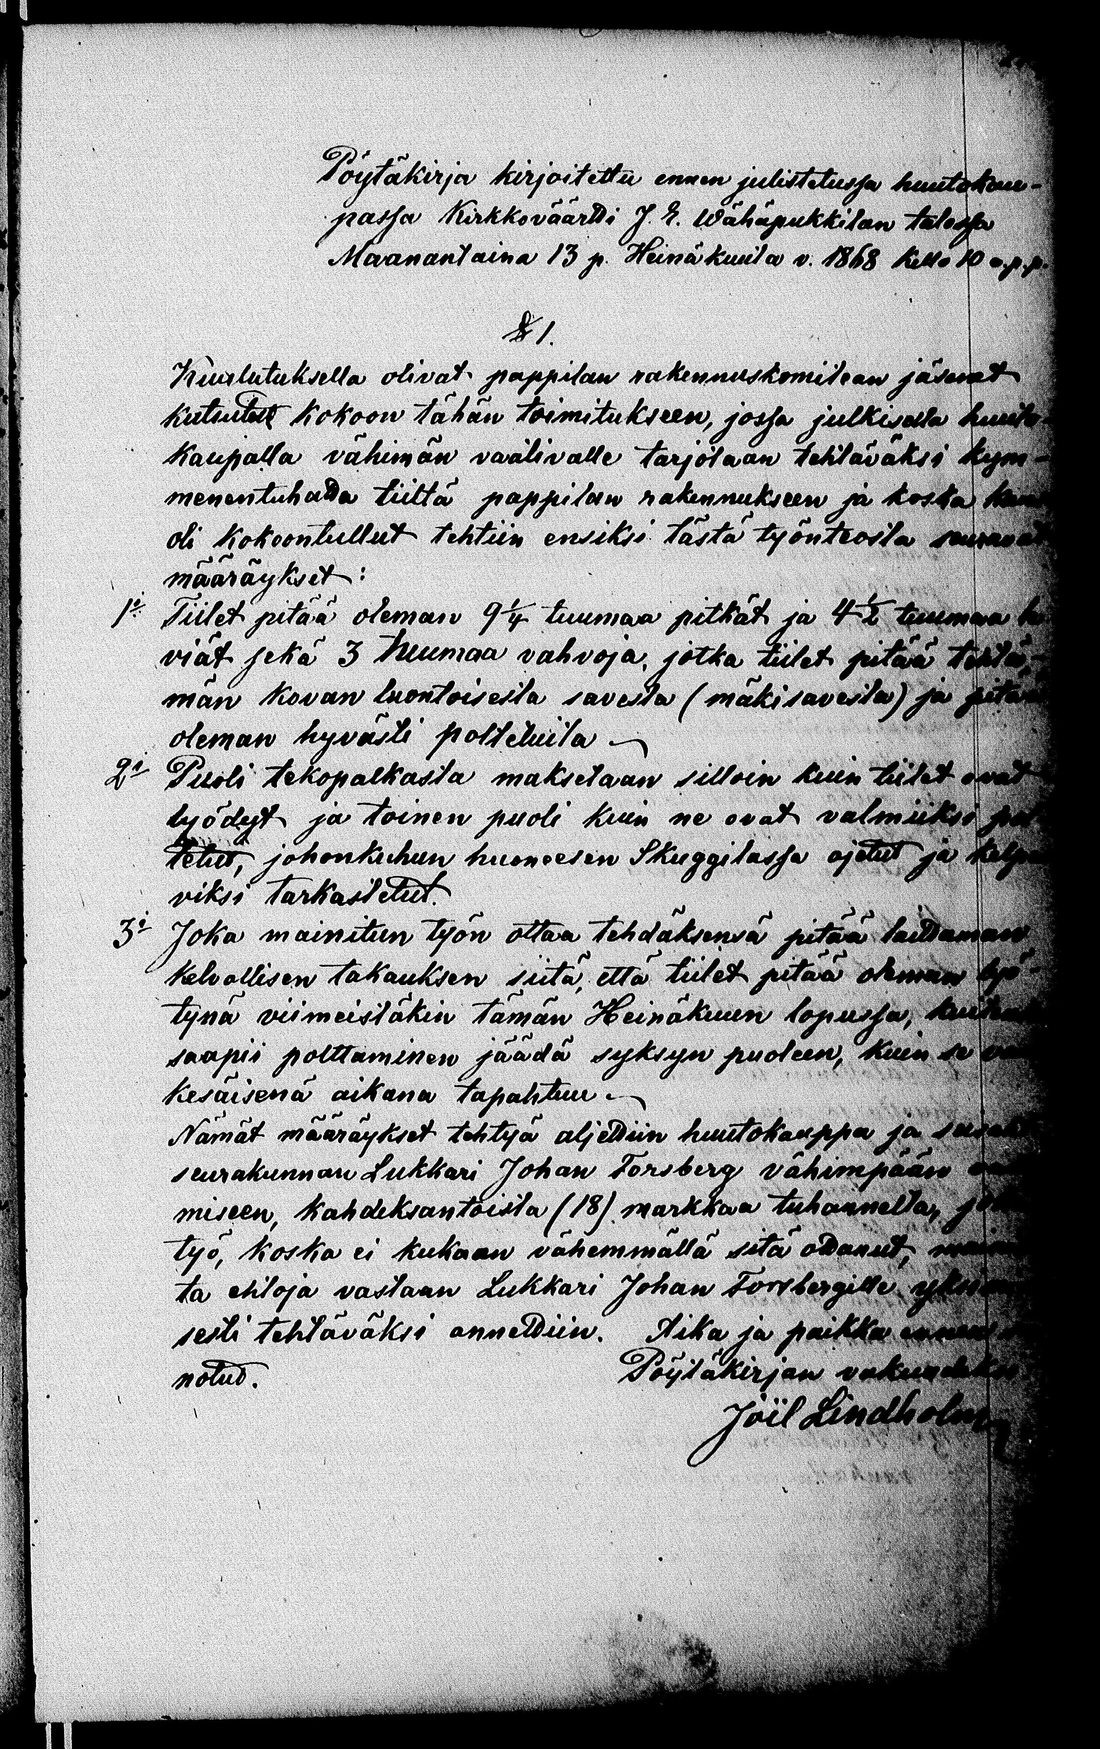 Pöytäkirja kirjoitettu ennen julistetussa huutokau-
passa Kirkkoväärdi J. E. Wähäpukkilan talossa
Maanantaina 13 p. Heinäkuuta v. 1868 kello 10 e.p.p.
§ 1.
Kuulutuksella olivat pappilan rakennuskomitean jäsenet
kutsutut kokoon tähän toimitukseen, jossa julkisella huuto
kaupalla vähimän vaativalle tarjotaan tehtäväksi kym-
menentuhatta tiiltä pappilan rakennukseen ja koska
oli kokoontullut tehtiin ensiksi tästä työnteosta seuraavat
määräykset:
1:o Tiilet pitää oleman 9 1/4 tuumaa pitkät ja 4 1/2 tuumaa le
viät sekä 3 tuumaa vahvoja, jotka tiilet pitää tehtä-
män kovan luontoisesta savesta (mäkisavesta) ja pitää
oleman hyvästi poltetuita
2:o Puoli tekopalkasta maksetaan silloin kuin tiilet ovat
lyödyt ja toinen puoli kuin ne ovat valmiiksi pol
tetut, johonkuhun huoneesen Skuggilassa ajetut ja kelpa
viksi tarkastetut.
3:o Joka mainitun työn ottaa tehdäksensä pitää laittaman
kelvollisen takauksen siitä, että tiilet pitää oleman lyö-
tynä viimeistäkin tämän Heinäkuun lopussa,
saapii polttaminen jäädä syksyn puoleen, kuin se
kesäisenä aikana tapahtuu.
Nämät määräykset tehtyä aljettiin huutokauppa ja
seurakunnan Lukkari Johan Forsberg vähimpään
miseen, kahdeksantoista (18) markkaa tuhannelta,
työ, koska ei kukaan vähemmällä sitä ottanut,
ta ehtoja vastaan Lukkari Johan Forsbergille
sesti tehtäväksi annettiin. Aika ja paikka ennen
notut. Pöytäkirjan vakuudeksi
Joël Lindholm